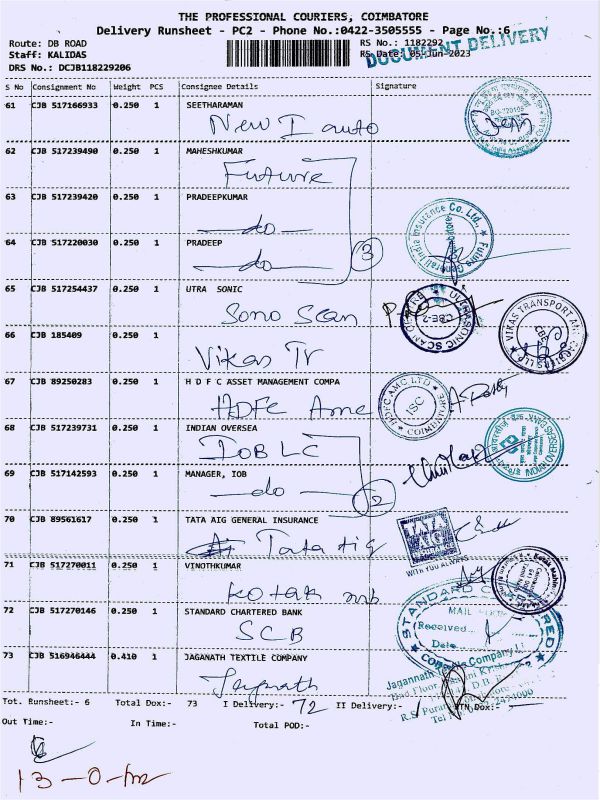 THE PROFESSIONAL COURIERS, COIMBATORE
Delivery Runsheet - PC2 - Phone No.:0422-3505555 - Page No.:6
Route: DB ROAD RS No.: 1182292
Staff: KALIDAS RS Date: 05-Jun-2023
DOCUMENT DELIVERY
DRS No.: DCJB118229206
S No Consignment No Weight PCS Consignee Details Signature
61 CJB 517166933 0.250 1 SEETHARAMAN
New I auto
62 CJB 517239490 0.250 1 MAHESHKUMAR
Future
63 CJB 517239420 0.250 1 PRADEEPKUMAR
—do—
64 CJB 517220030 0.250 1 PRADEEP
—do— 3
Future Generali India Insurance Co. Ltd.
65 CJB 517254437 0.250 1 UTRA SONIC
Sono Scan
ULTRASONIC SCAN CENTRE
CBE-2
VIKAS TRANSPORT AND CARRIERS LLP
CBE
66 CJB 185409 0.250 1
Vikas Tr
67 CJB 89250283 0.250 1 H D F C ASSET MANAGEMENT COMPA
HDFC Amc
HDFC AMC LTD
ISC
COIMBATORE
68 CJB 517239731 0.250 1 INDIAN OVERSEA
IOB LC
INDIAN OVERSEAS BANK
69 CJB 517142593 0.250 1 MANAGER, IOB
—do— 2
70 CJB 89561617 0.250 1 TATA AIG GENERAL INSURANCE
Tata aig
TATA
AIG
WITH YOU ALWAYS
71 CJB 517270011 0.250 1 VINOTHKUMAR
Kotak mb
72 CJB 517270146 0.250 1 STANDARD CHARTERED BANK
SCB
STANDARD CHARTERED
MAIL
Received
Date
73 CJB 516946444 0.410 1 JAGANATH TEXTILE COMPANY
Jagnath
Jagannath Textile Company Li
Tot. Runsheet:- 6 Total Dox:- 73 I Delivery:- 72 II Delivery:- RTN Dox:-
Out Time:- In Time:- Total POD:-